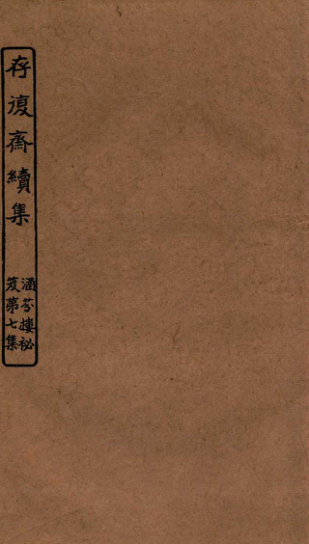 存復齋續集
涵芬樓秘
笈第七集